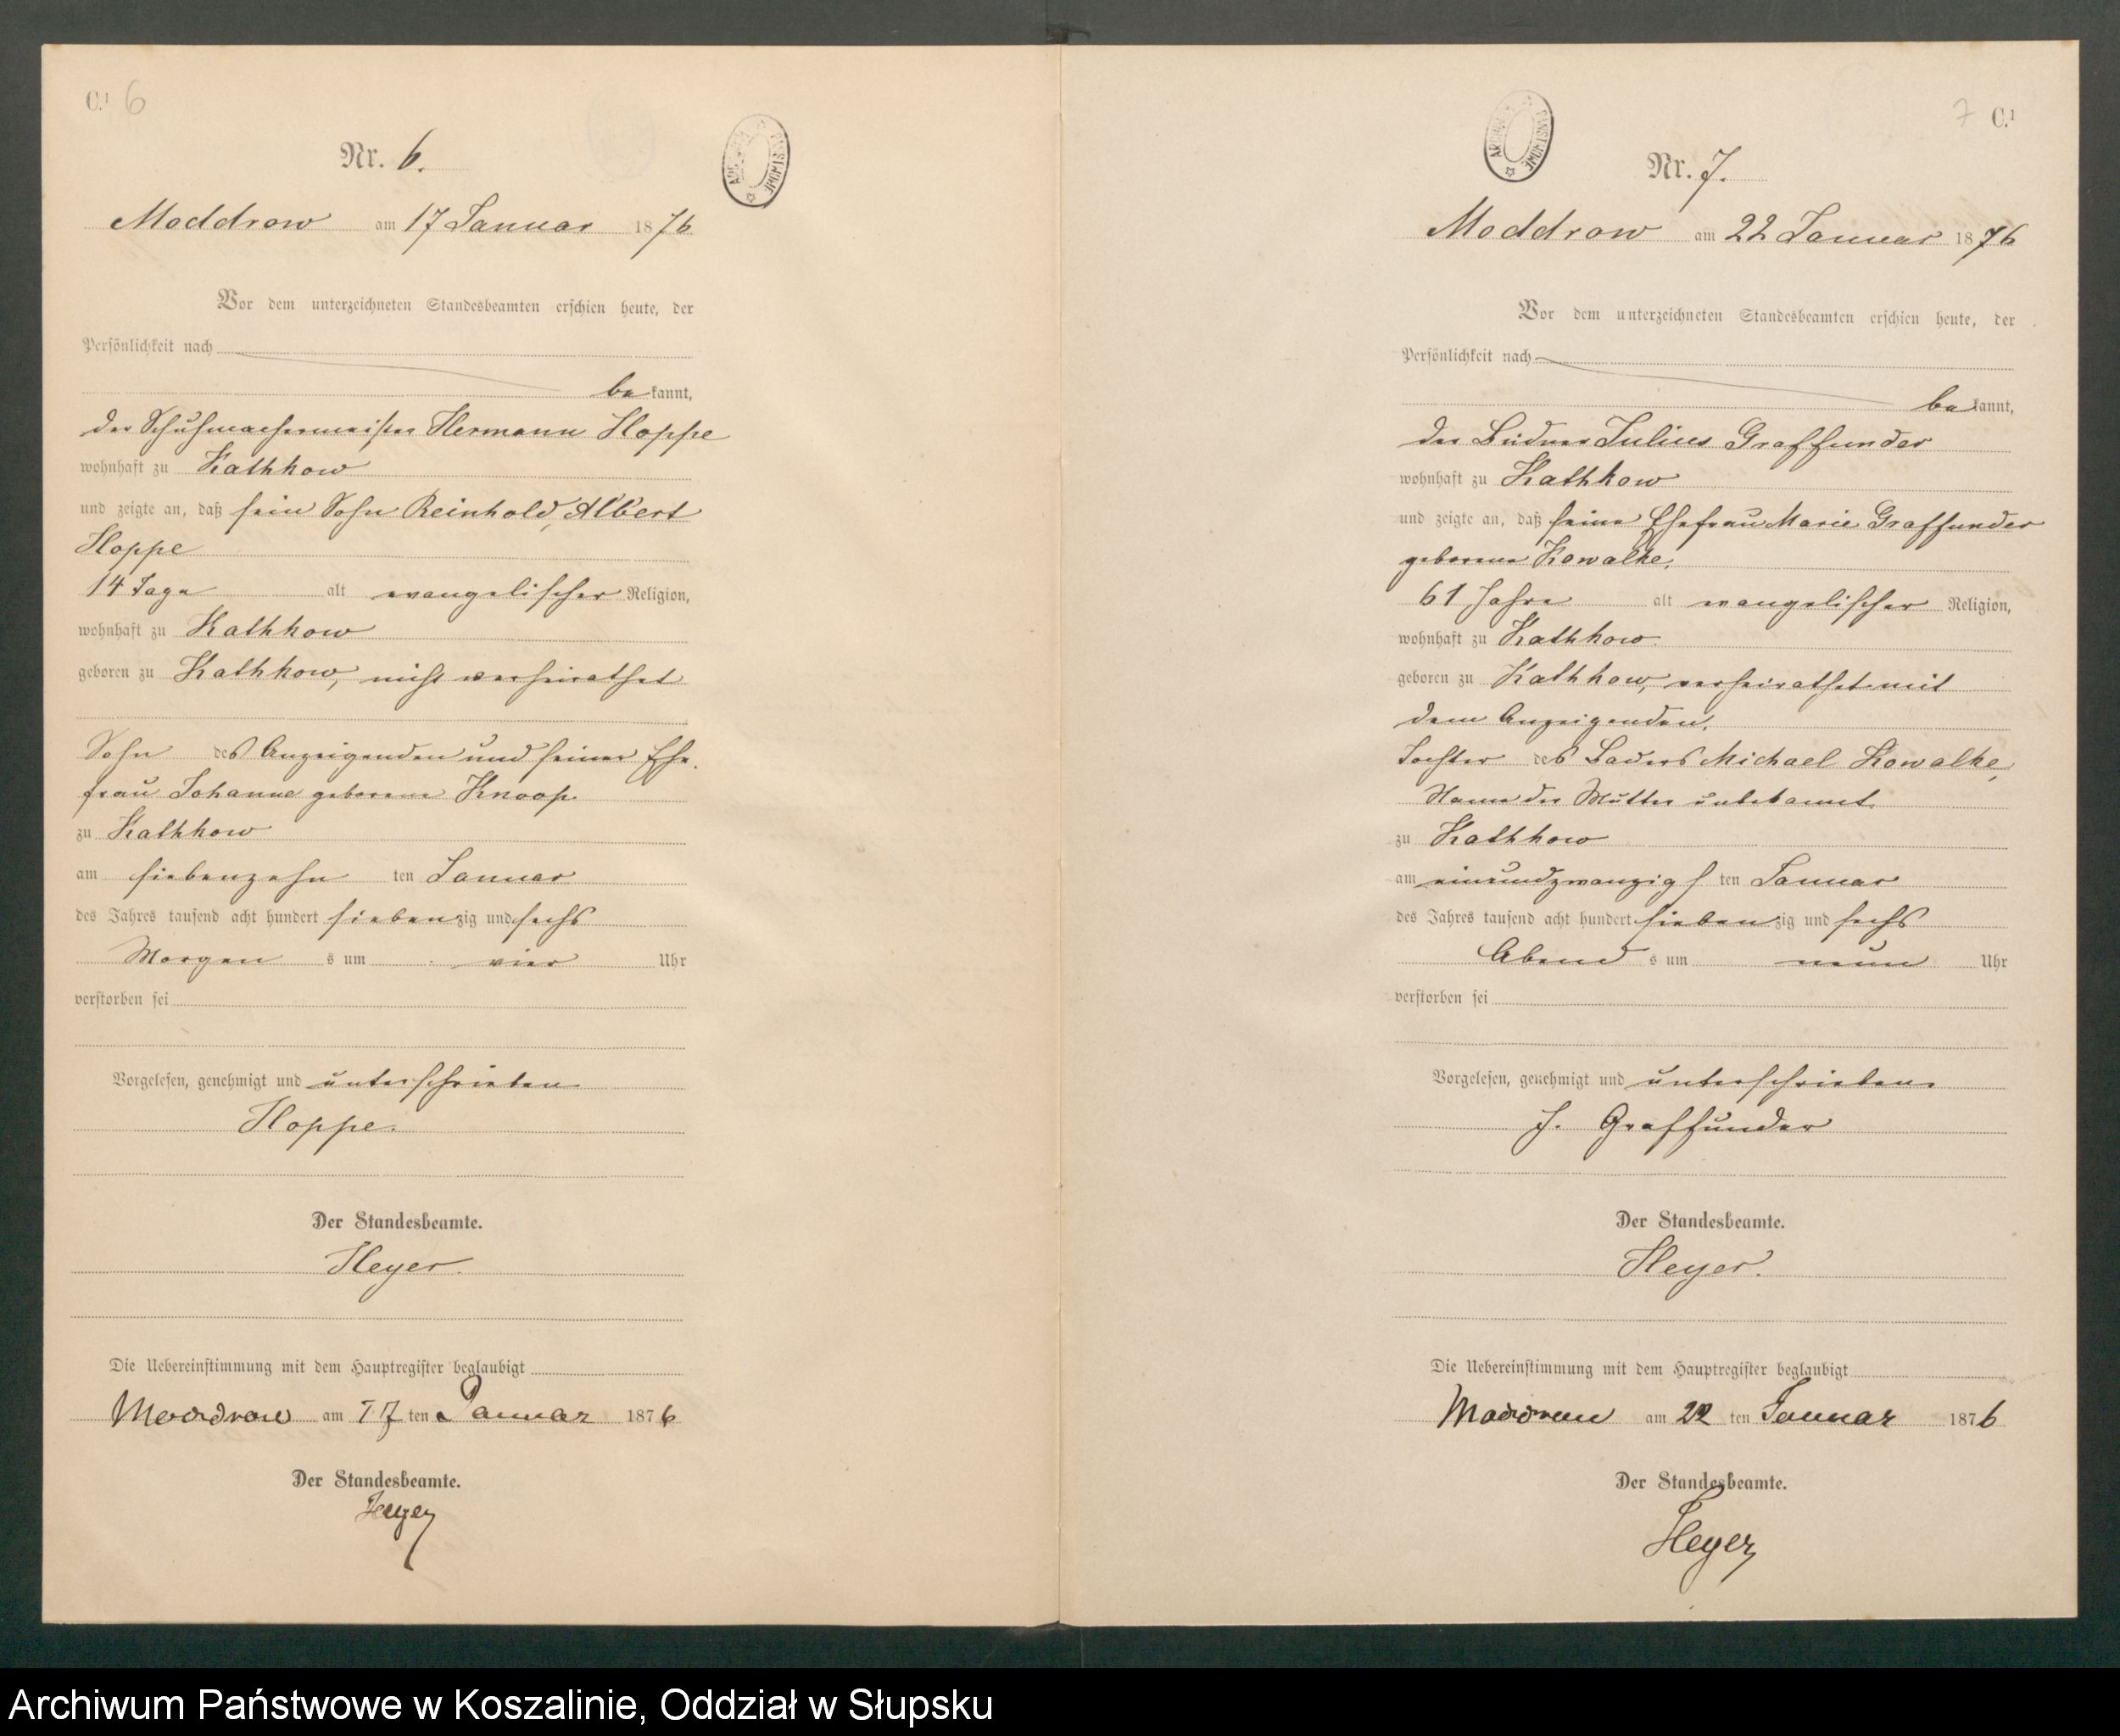 C.¹ 6
ARCHIWUM PAŃSTWOWE
Nr. 6.
Moddrow am 17 Januar 1876
Vor dem unterzeichneten Standesbeamten erschien heute, der
Persönlichkeit nach
bekannt,
der Schuhmachermeister Hermann Hoppe
wohnhaft zu Kathkow
und zeigte an, daß sein Sohn Reinhold, Albert
Hoppe
14 Tage alt evangelischer Religion,
wohnhaft zu Kathkow
geboren zu Kathkow, nicht verheirathet
Sohn des Anzeigenden und seiner Ehe-
frau Johanne geborene Knoop.
zu Kathkow
am siebenzehn ten Januar
des Jahres tausend acht hundert siebenzig und sechs
Morgens um vier Uhr
verstorben sei
Vorgelesen, genehmigt und unterschrieben
Hoppe.
Der Standesbeamte.
Heyer.
Die Uebereinstimmung mit dem Hauptregister beglaubigt
Moddrow am 17 ten Januar 1876
Der Standesbeamte.
Heyer
7 C.¹
ARCHIWUM PAŃSTWOWE
Nr. 7.
Moddrow am 22 Januar 1876
Vor dem unterzeichneten Standesbeamten erschien heute, der
Persönlichkeit nach
bekannt,
der Büdner Julius Graffunder
wohnhaft zu Kathkow
und zeigte an, daß seine Ehefrau Marie Graffunder
geborene Kowalke,
61 Jahre alt evangelischer Religion,
wohnhaft zu Kathkow.
geboren zu Kathkow, verheirathet mit
dem Anzeigenden,
Tochter des Bauers Michael Kowalke,
Name der Mutter unbekannt.
zu Kathkow
am einundzwanzigsten Januar
des Jahres tausend acht hundert siebenzig und sechs
Abends um neun Uhr
verstorben sei
Vorgelesen, genehmigt und unterschrieben.
J. Graffunder
Der Standesbeamte.
Heyer.
Die Uebereinstimmung mit dem Hauptregister beglaubigt
Moddrow am 22 ten Januar 1876
Der Standesbeamte.
Heyer
Archiwum Państwowe w Koszalinie, Oddział w Słupsku